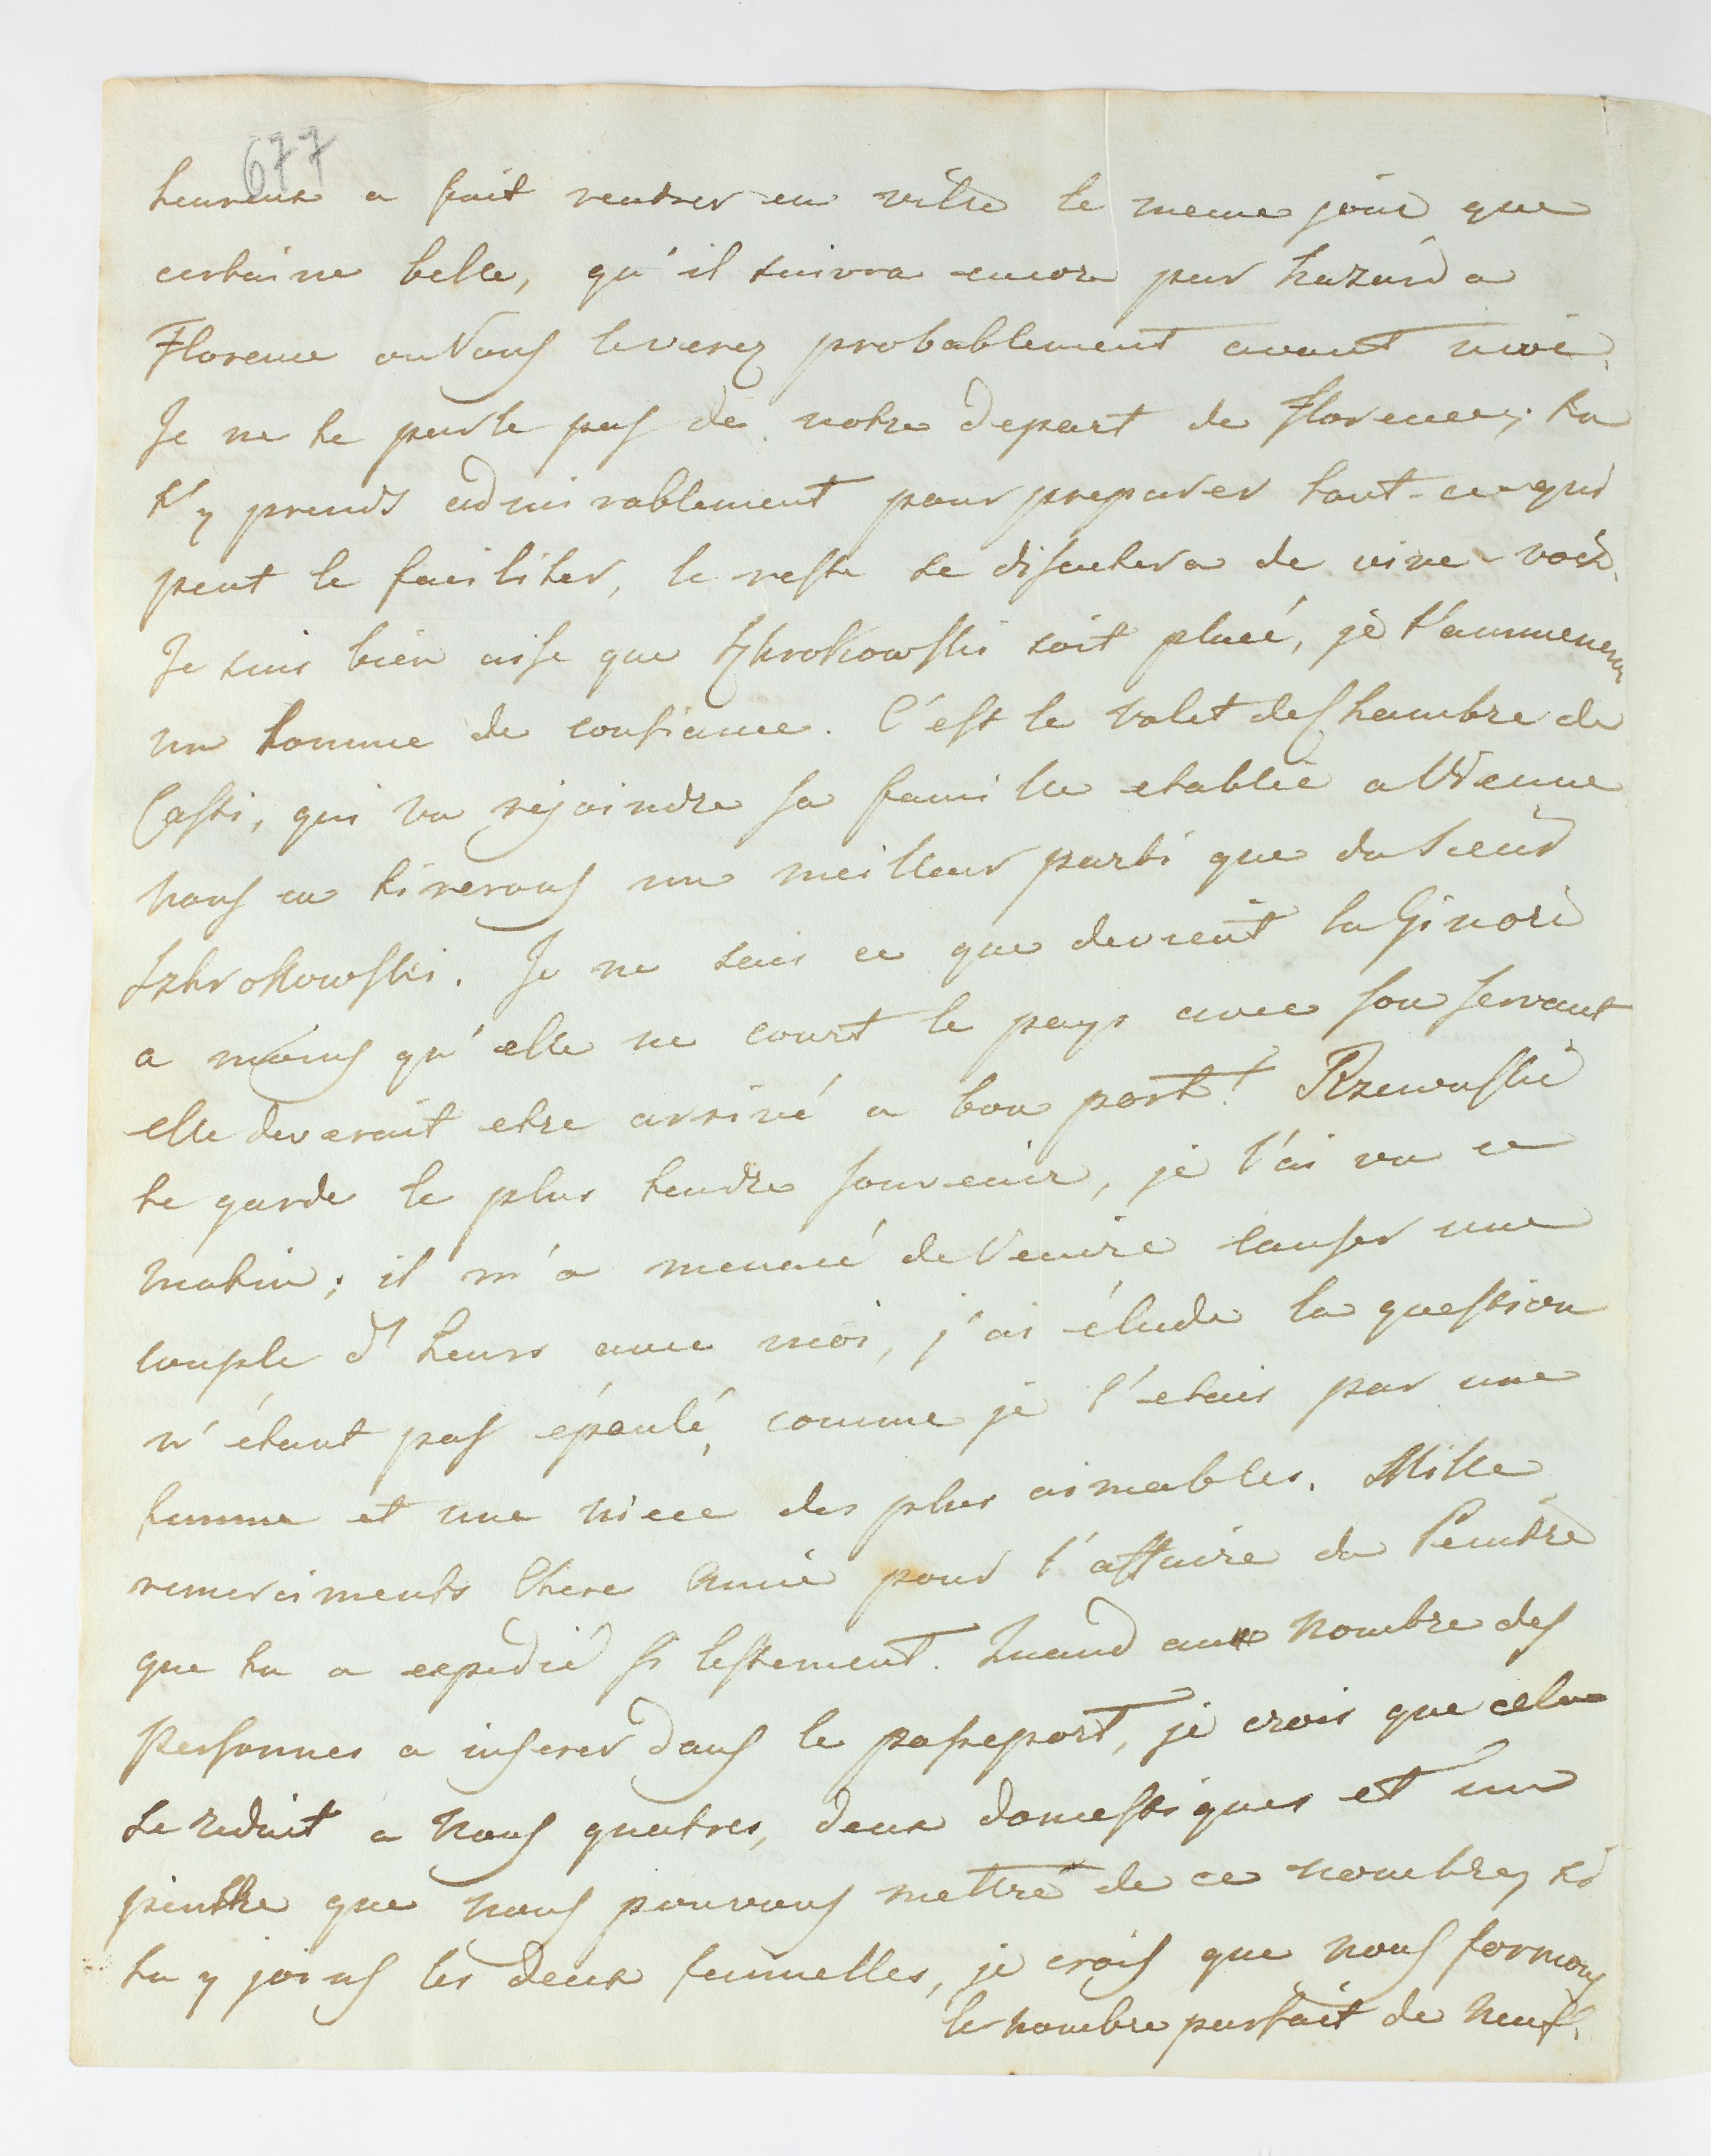 677
heureux a fait rentrer en ville le meme jour que
certaine belle, qu'il suivra encore par hazard a
Florence ou Vous le verez probablement avant moi.
Je ne te parle pas de notre depart de Florence; tu
t'y prends admirablement pour preparer tout-ce-qui
peut le faciliter, le reste se discutera de vive-voix.
Je suis bien aise que Szkrokowski soit placé, je t'ammenerai
un homme de confiance. C'est le Valet deChambre de
Casti, qui va rejoindre sa famille etablie a Vienne
nous en tirerons un meilleur parti que du Sieur
Szkrokowski. Je ne sais ce que devient la Ginori
a moins qu'elle ne court le pays avec son servant
elle deverait etre arrivé a bon port! Rzewuski
te garde le plus tendre souvenir, je l'ai vu ce
matin; il m'a menacé de Venire causer une
couple d'heurs avec moi, j'ai éludé la question
n'étant pas épaulé, comme je l'etais par une
femme et une niece des plus aimables. Mille
remerciments Chere Amie pour l'affaire du Peintre
que tu a expedié si lestement. Quand au nombre des
Personnes a inserer dans le passeport, je crois que cela
se reduit a nous quatres, deux domestiques et un
peintre que nous pouvons mettre de ce nombre, si
tu y joins les deux femmelles, je crois que nous formons
le nombre parfait de neuf.